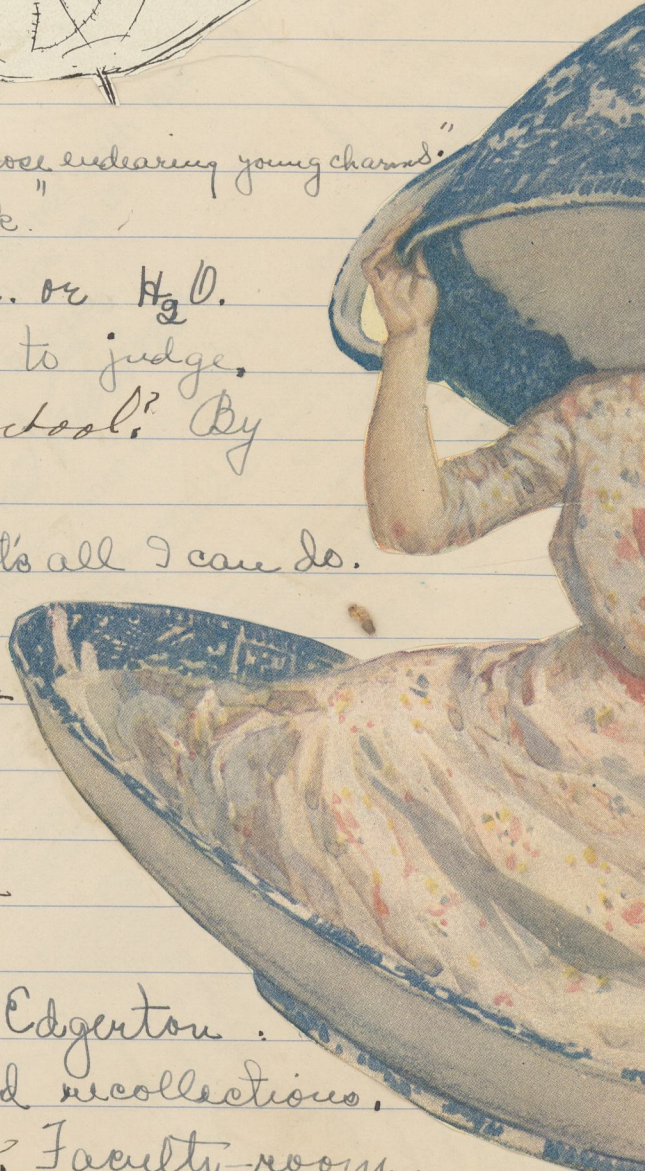 endearing young charms."
or H2O.
to judge.
school? By
all I can do.
Edgerton.
recollections.
Faculty-room